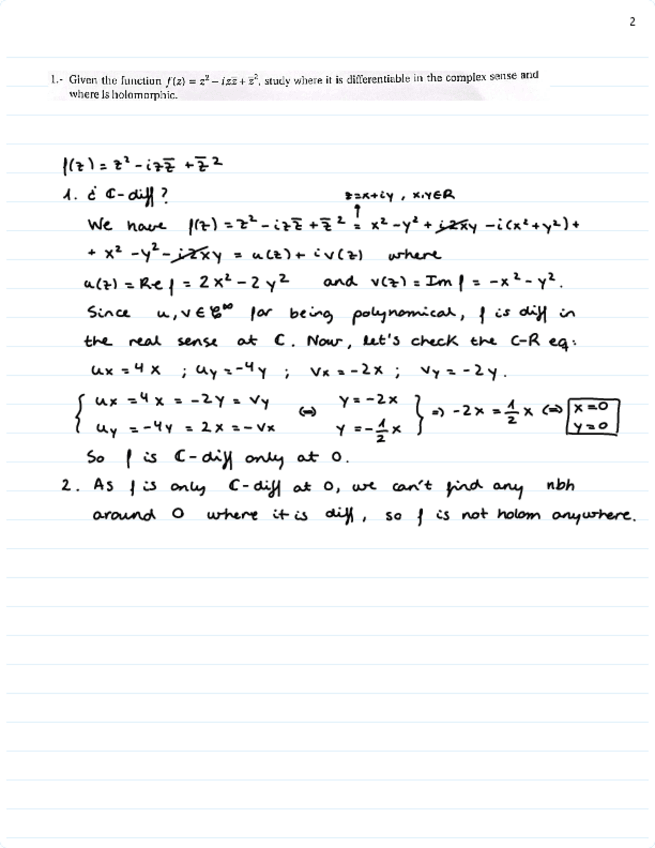 2
1.- Given the function f(z) = z² − izz̄ + z̄², study where it is differentiable in the complex sense and
where is holomorphic.
f(z) = z² - izz̄ + z̄²
1. ¿ ℂ-diff?
z=x+iy, x,y∈ℝ
We have f(z) = z² - izz̄ + z̄² = x² - y² + i2xy - i(x² + y²) +
+ x² - y² - i2xy = u(z) + iv(z) where
u(z) = Re f = 2x² - 2y² and v(z) = Im f = -x² - y².
Since u, v ∈ 𝒞^∞ for being polynomical, f is diff in
the real sense at ℂ. Now, let's check the C-R eq:
ux = 4x ; uy = -4y ; vx = -2x ; vy = -2y.
{ ux = 4x = -2y = vy ⇔ y = -2x } ⇒ -2x = 1/2 x ⇔ x=0
uy = -4y = 2x = -vx y = -1/2 x y=0
So f is ℂ-diff only at 0.
2. As f is only ℂ-diff at 0, we can't find any nbh
around 0 where it is diff, so f is not holom anywhere.